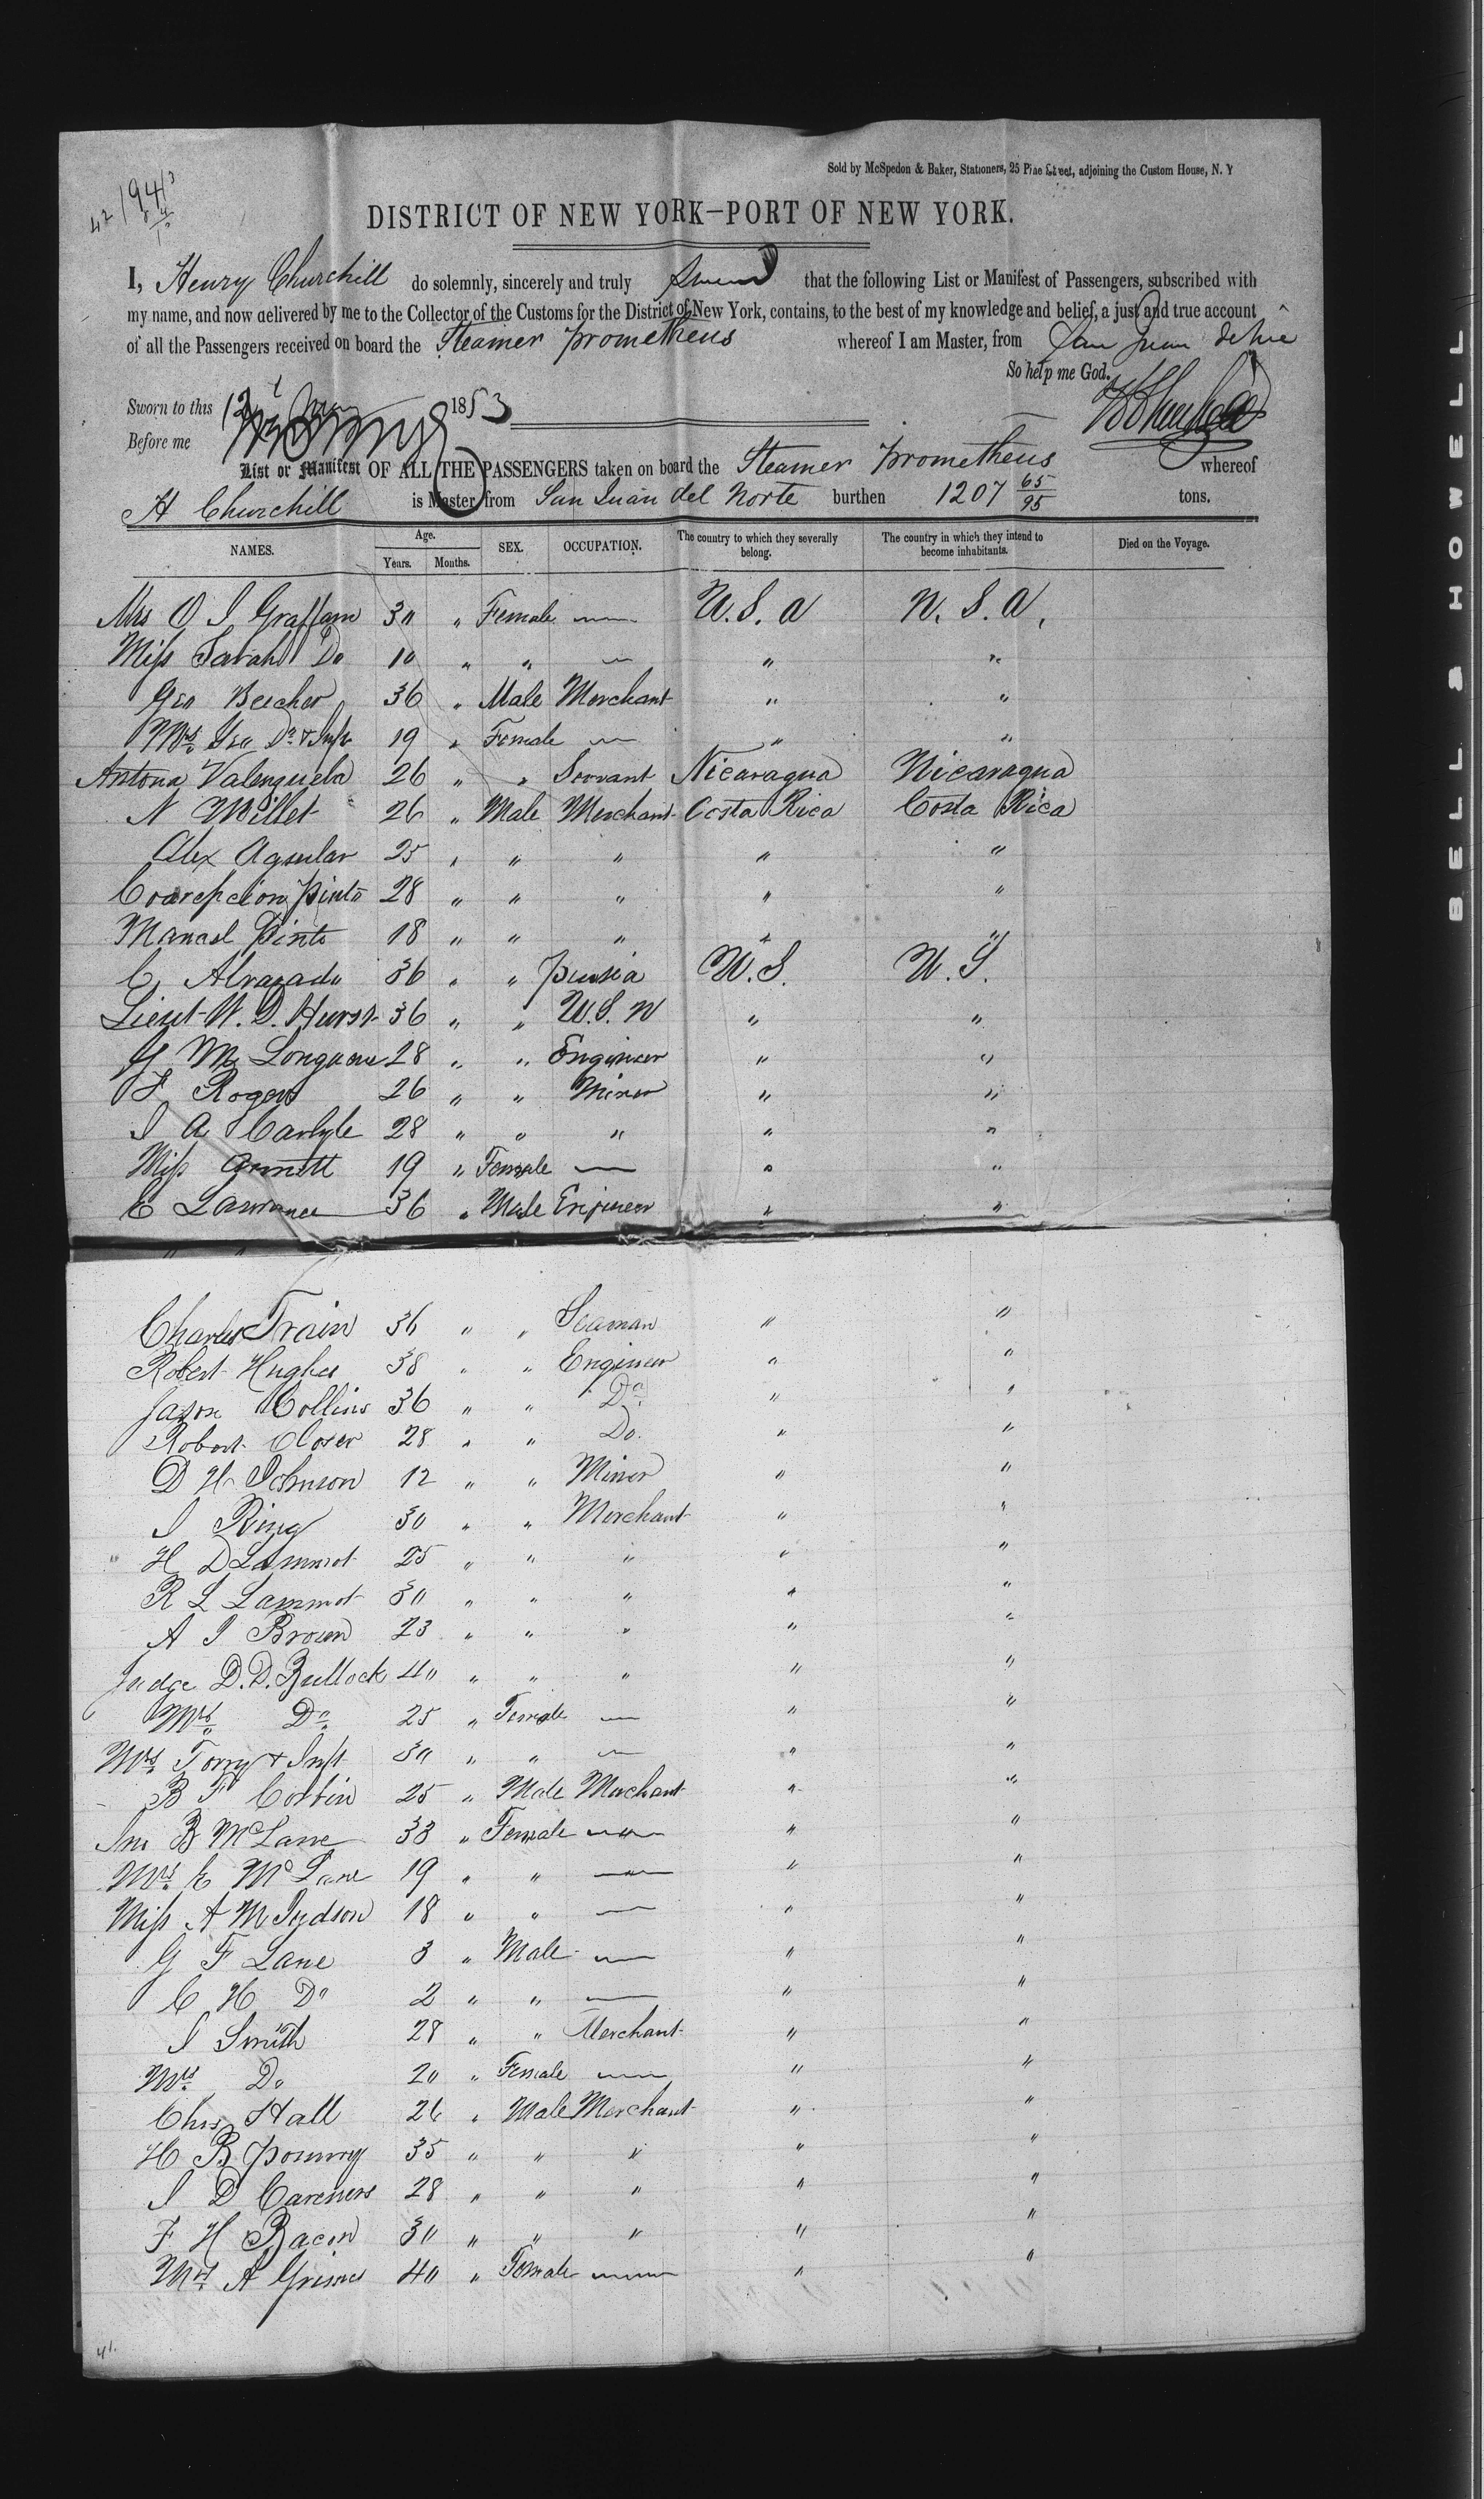 Sold by McSpedon & Baker, Stationers, 25 Pine Street, adjoining the Custom House, N. Y
42 194
DISTRICT OF NEW YORK—PORT OF NEW YORK.
I, Henry Churchill do solemnly, sincerely and truly Swear that the following List or Manifest of Passengers, subscribed with
my name, and now delivered by me to the Collector of the Customs for the District of New York, contains, to the best of my knowledge and belief, a just and true account
of all the Passengers received on board the Steamer Prometheus whereof I am Master, from San Juan
So help me God.
Sworn to this 12 1853 H Churchill
Before me
List or Manifest OF ALL THE PASSENGERS taken on board the Steamer Prometheus whereof
H Churchill is Master, from San Juan del Norte burthen 1207 65/95 tons.
NAMES. Age. Years. Months. SEX. OCCUPATION. The country to which they severally belong. The country in which they intend to become inhabitants. Died on the Voyage.
Mrs O I Graffam 30 " Female — U. S. A U. S. A,
Miss Sarah Do 10 " " — " "
Geo Beecher 36 " Male Merchant " "
Mrs Geo Do & Inft 19 " Female — " "
Antona Valenzuela 26 " " Servant Nicaragua Nicaragua
N Millet 26 " Male Merchant Costa Rica Costa Rica
Alex Aguilar 25 " " " " "
Concepcion Pinto 28 " " " " "
Manael Pinto 18 " " " " "
C Alvarado 36 " " U. S. U. S.
Lieut W. D. Hurst 36 " " U. S. N " "
G M Longacre 28 " " Engineer " "
F Rogers 26 " " Miner " "
I A Carlyle 28 " " " " "
Miss 19 " Female — " "
E Lawrance 36 " Male Engineer " "
Charles Train 36 " " Seaman " "
Robert Hughes 38 " " Engineer " "
Jason Collins 36 " " Do " "
Robert Closer 28 " " Do. " "
D H Johnson 12 " " Miner " "
I Ring 30 " " Merchant " "
H D Lammot 25 " " " " "
R L Lammot 30 " " " " "
A I Brown 23 " " " " "
Judge D. D. Bullock 40 " " " " "
Mrs Do 25 " Female — " "
Mrs Torry & Inft 30 " " — " "
B F Corbin 25 " Male Merchant " "
Jno B McLane 33 " Female — " "
Mrs E McLane 19 " " — " "
Miss A M Judson 18 " " — " "
G F Lane 3 " Male — " "
C H Do 2 " " — " "
I Smith 28 " " Merchant " "
Mrs Do 20 " Female — " "
Chrs Hall 26 " Male Merchant " "
H B Pomroy 35 " " " " "
I D 28 " " " " "
F H Bacon 30 " " " " "
Mrs A Grimes 40 " Female — " "
41.
BELL & HOWELL